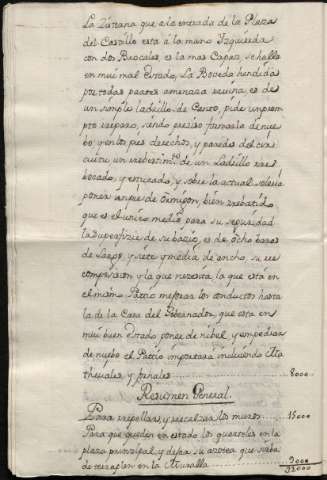 La Zistana que a la entrada de la Plaza
del Castillo esta á la mano Izquierda
con dos Brocales, es la mas Capaz, se halla
en mui mal Estado, La Boveda hendida
por todas partes amenaza ruina, es de
un simple ladrillo de Canto, pide un prom
pto reparo, siendo preciso formarla de nue
bo por los pies derechos, y paredes del cir
cuitu un rebestimto de un Ladrillo
bocado, y enlucido, y sobre la actual solería
poner un pie de Ormigon, bien rebatido
que es el unico medio para su seguridad
la superfizie de su bacio, es de ocho baras
de Largo, y siete y media de ancho, su re
composicion y la que necesita la que esta en
el mismo Patio mejorar los conductos hasta
la de la Casa del Gobernador que esta en
mui buen Estado, poner de nibel, y empedrar
de nuebo el Pattio importara incluiendo Ma
theriales y jornales 8000
Resumen General
Para repellar, y recalzar los muros 15000
Para que queden en estado los quarteles en la
plaza principal, y dejar su azotea que sirba
de terraplen en la Muralla 9000
32000